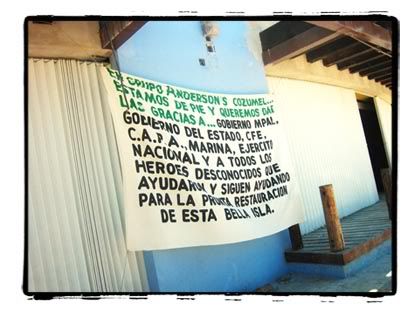 EN GRUPO ANDERSON'S COZUMEL...
ESTAMOS DE PIE Y QUEREMOS DAR
LAS GRACIAS A... GOBIERNO MPAL.
GOBIERNO DEL ESTADO, CFE.
C.A.P.A., MARINA, EJERCITO
NACIONAL Y A TODOS LOS
HEROES DESCONOCIDOS QUE
AYUDARON Y SIGUEN AYUDANDO
PARA LA PRONTA RESTAURACION
DE ESTA BELLA ISLA.